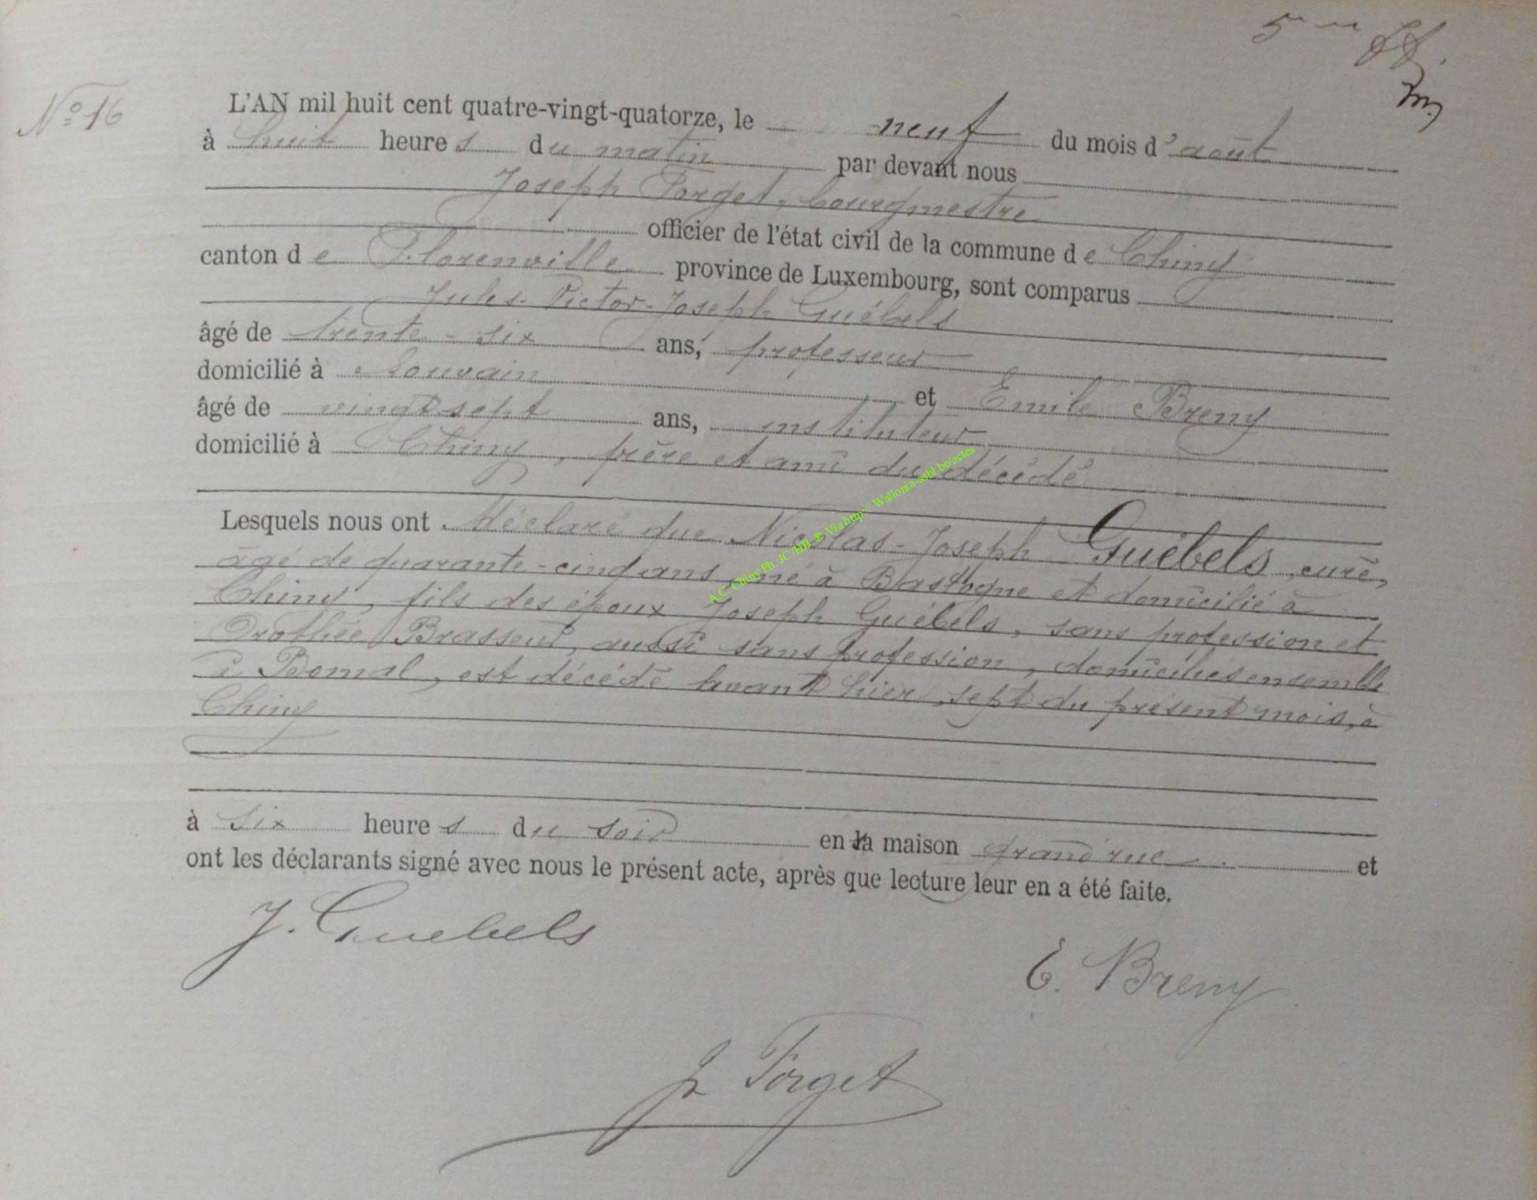 5
N° 16
L'AN mil huit cent quatre-vingt-quatorze, le neuf du mois d'août
à huit heures du matin par devant nous
Joseph Forget, bourgmestre
officier de l'état civil de la commune de Chiny
canton de Florenville province de Luxembourg, sont comparus
Jules-Victor-Joseph Guébels
âgé de trente-six ans, professeur
domicilié à Louvain et Emile Breny
âgé de vingt sept ans, instituteur
domicilié à Chiny, frère et ami du décédé
Lesquels nous ont déclaré que Nicolas-Joseph Guébels, curé,
âgé de quarante-cinq ans, né à Bastogne et domicilié à
Chiny, fils des époux Joseph Guébels, sans profession et
Brasseur, aussi sans profession, domiciliés ensemble
à Bomal, est décédé avant hier, sept du présent mois, à
Chiny
à six heures du soir en la maison grand'rue et
ont les déclarants signé avec nous le présent acte, après que lecture leur en a été faite.
J. Guebels
E. Breny
J Forget